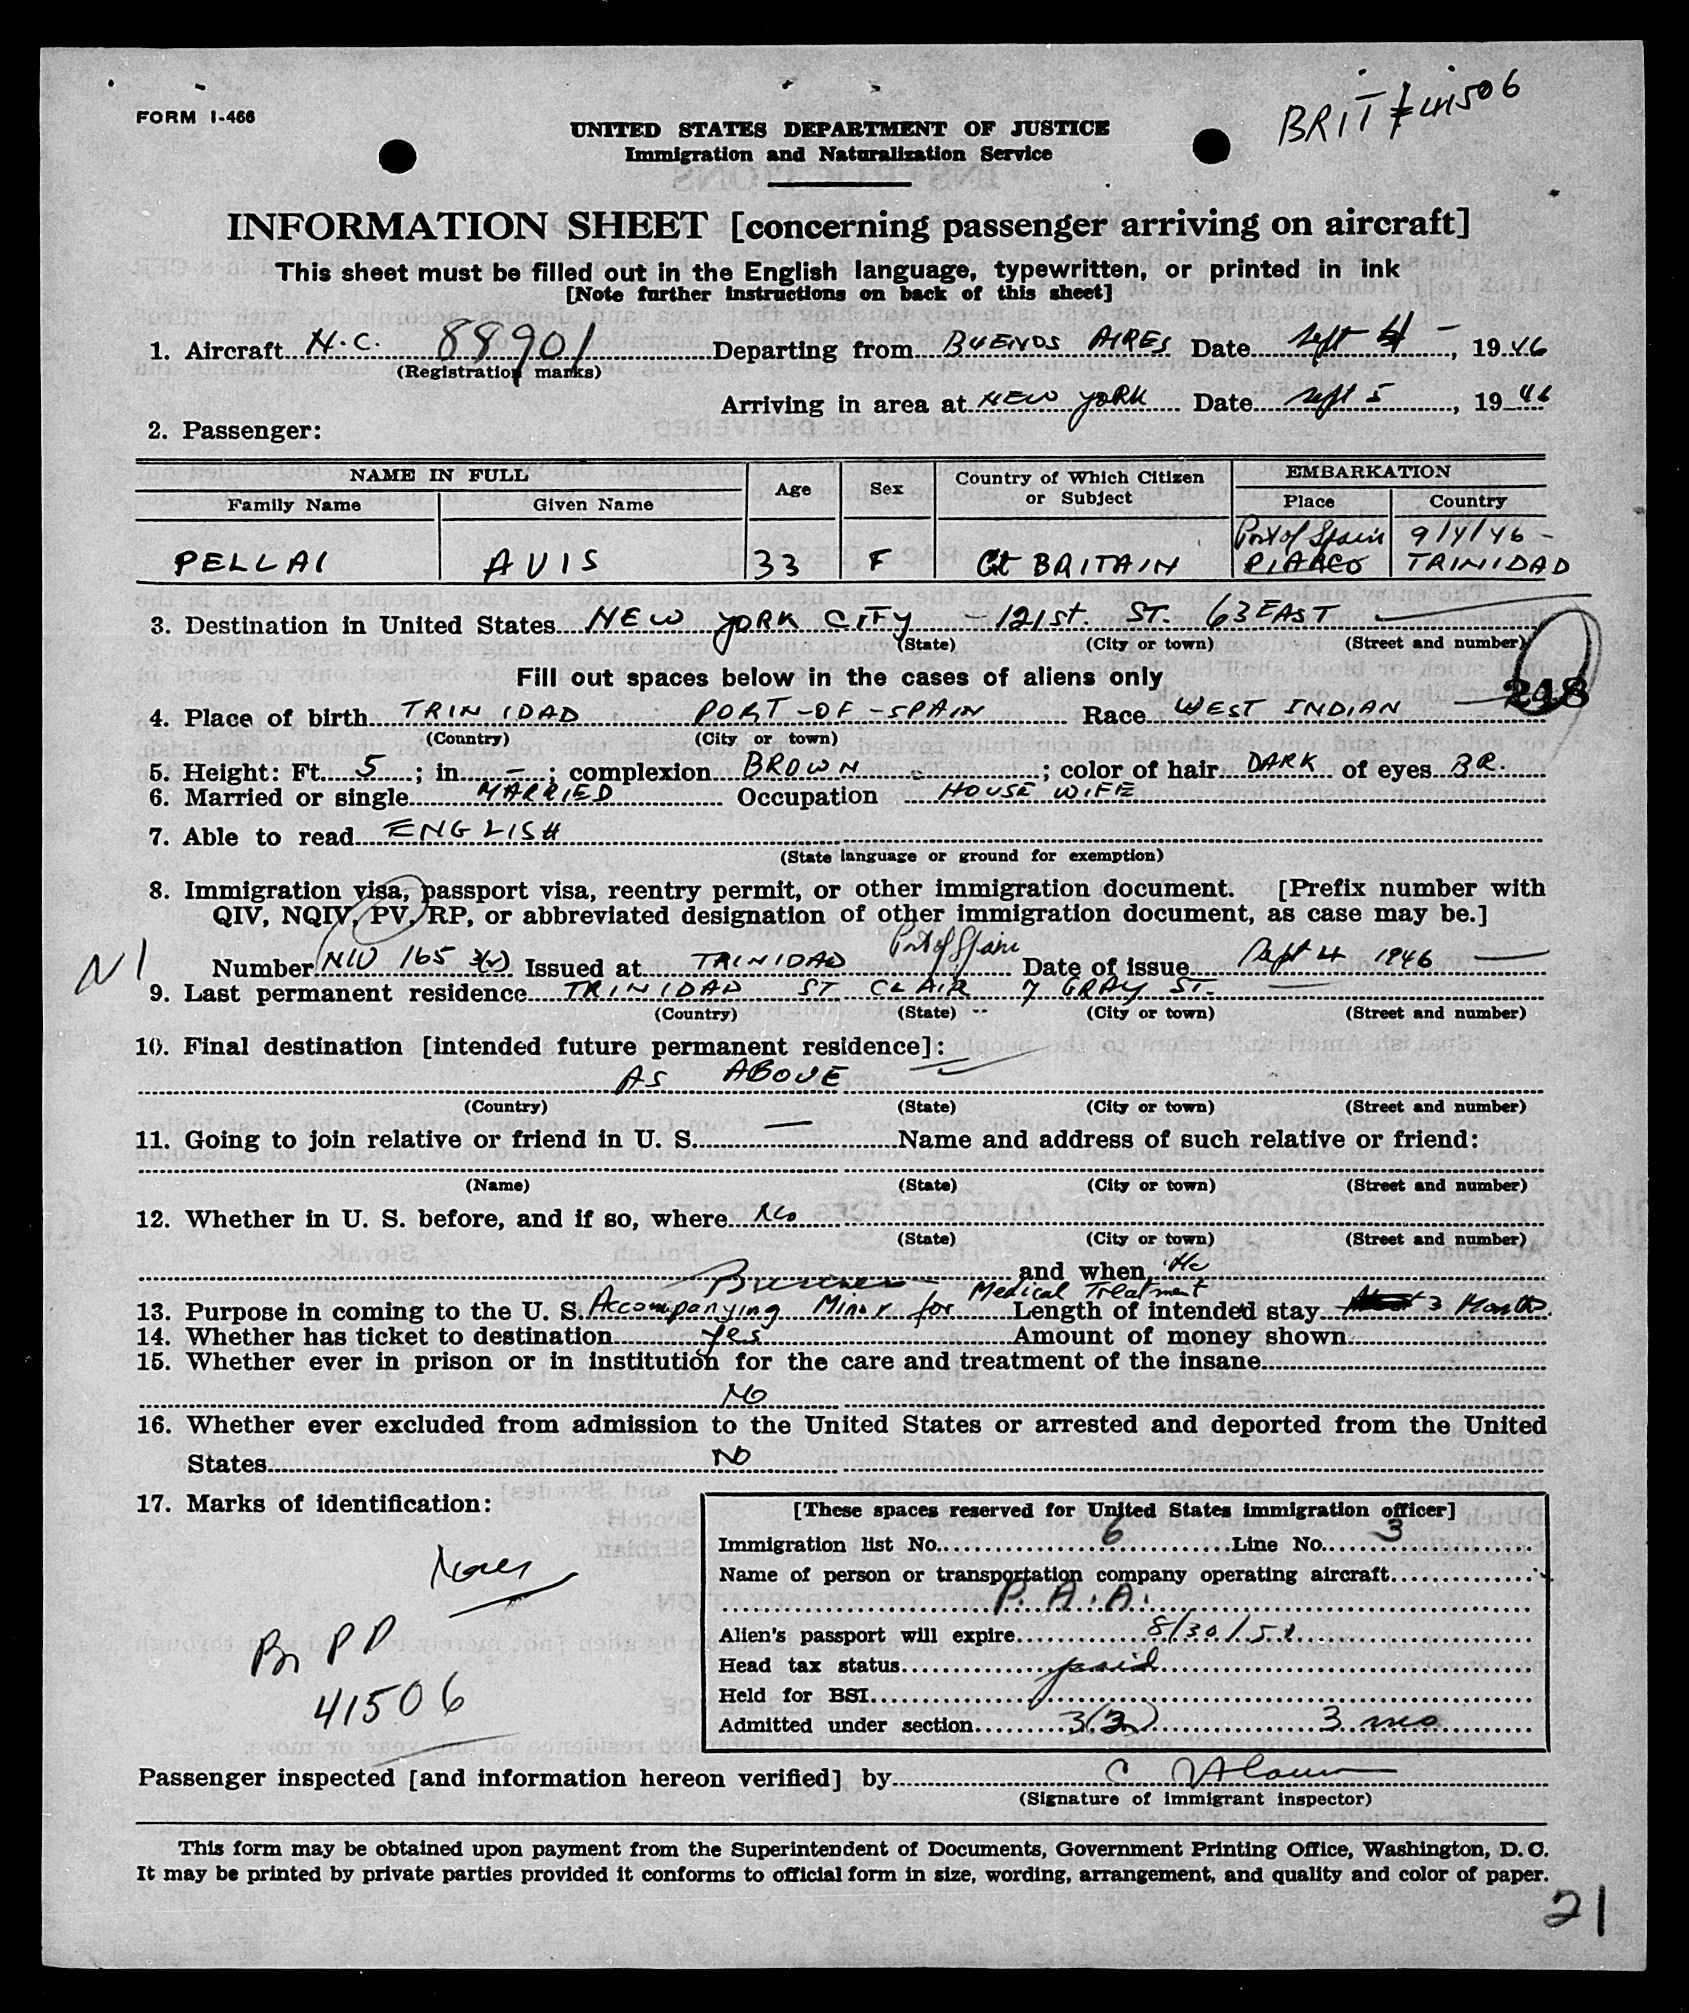 FORM I-466
BRIT # 41506
UNITED STATES DEPARTMENT OF JUSTICE
Immigration and Naturalization Service
INFORMATION SHEET [concerning passenger arriving on aircraft]
This sheet must be filled out in the English language, typewritten, or printed in ink
[Note further instructions on back of this sheet]
1. Aircraft N.C. 88901 Departing from BUENOS AIRES Date Sept 4 - , 1946
(Registration marks)
Arriving in area at NEW YORK Date Sept 5 , 1946
2. Passenger:
NAME IN FULL Age Sex Country of Which Citizen or Subject EMBARKATION
Family Name Given Name Place Country
Port of Spain 9/4/46 -
PELLAI AVIS 33 F Gt BRITAIN PIARCO TRINIDAD
3. Destination in United States NEW YORK CITY - 121st. ST. 63 EAST
(State) (City or town) (Street and number)
Fill out spaces below in the cases of aliens only
248
4. Place of birth TRINIDAD PORT-OF-SPAIN Race WEST INDIAN
(Country) (City or town)
5. Height: Ft. 5 ; in. - ; complexion BROWN ; color of hair DARK of eyes BR.
6. Married or single MARRIED Occupation HOUSE WIFE
7. Able to read ENGLISH
(State language or ground for exemption)
8. Immigration visa, passport visa, reentry permit, or other immigration document. [Prefix number with
QIV, NQIV, PV, RP, or abbreviated designation of other immigration document, as case may be.]
NI
Number NIV 165 3(2) Issued at TRINIDAD Port of Spain Date of issue Sept 4 1946
9. Last permanent residence TRINIDAD ST CLAIR 7 GRAY ST.
(Country) (State) (City or town) (Street and number)
10. Final destination [intended future permanent residece]:
AS ABOVE
(Country) (State) (City or town) (Street and number)
11. Going to join relative or friend in U. S. — Name and address of such relative or friend:
(Name) (State) (City or town) (Street and number)
12. Whether in U. S. before, and if so, where No
(State) (City or town) (Street and number)
and when
13. Purpose in coming to the U. S. Accompanying Minor for Medical Treatment Length of intended stay 3 Months.
14. Whether has ticket to destination yes Amount of money shown
15. Whether ever in prison or in institution for the care and treatment of the insane
No
16. Whether ever excluded from admission to the United States or arrested and deported from the United
States No
17. Marks of identification:
None
Br PP
41506
[These spaces reserved for United States immigration officer]
Immigration list No. 6 Line No. 3
Name of person or transportation company operating aircraft
P. A. A.
Alien's passport will expire 8/30/51
Head tax status paid
Held for BSI
Admitted under section 3(2) 3 mo
Passenger inspected [and information hereon verified] by
(Signature of immigrant inspector)
This form may be obtained upon payment from the Superintendent of Documents, Government Printing Office, Washington, D. C.
It may be printed by private parties provided it conforms to official form in size, wording, arrangement, and quality and color of paper.
21